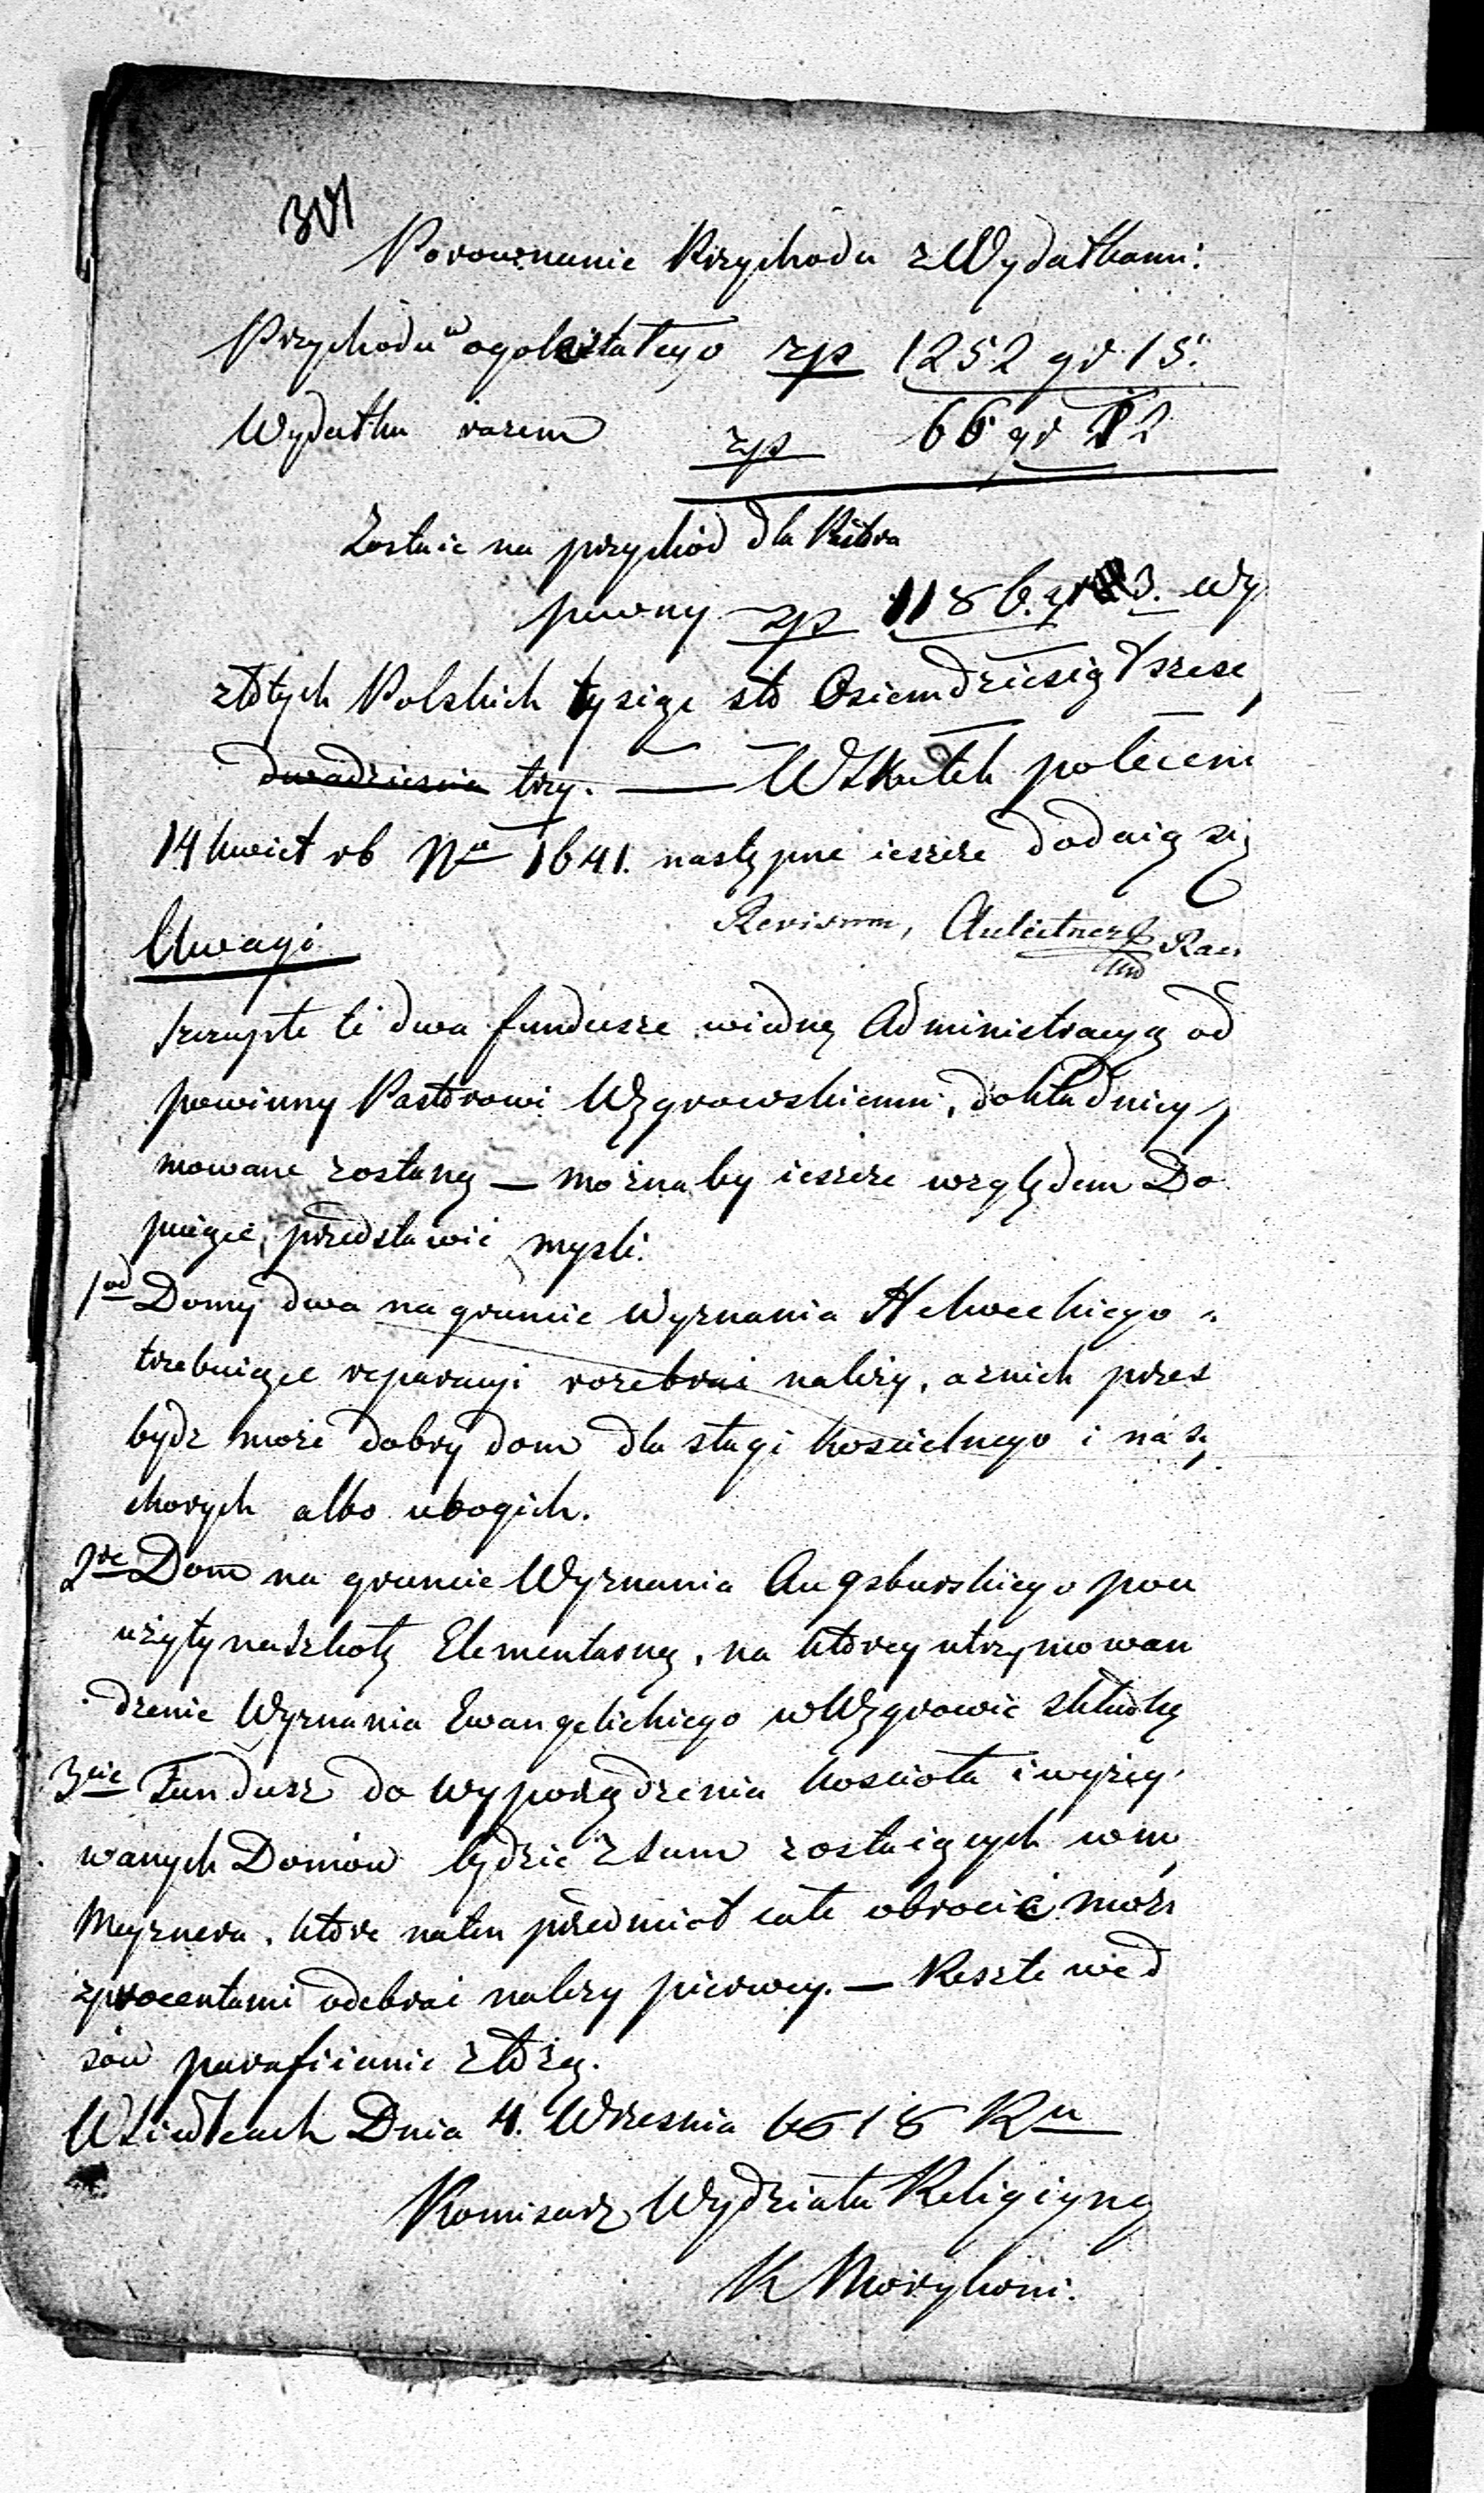 Porownanie Przychodu z Wydatkami:
Przychodu ogolnie stałego zp 1252 gr 15.
Wydatku razem zp 66 gr 12
Zostaie na przychód dla
pewny zp 1186. gr 3. wy
złotych Polskich tysiąc sto Osiemdziesiąt szesc
dwadziescia trzy. — W Skutek poleceni
14 kwiet rb No 1641. następne ieszcze dodaią się
Revisum, Rac.
Uwagi
Szczupłe te dwa fundusze w iedną Administracyą od
powinny Pastorowi Węgrowskiemu, dokładniey
mowane zostaną — możnaby ieszcze względem Do
puiące, przedstawić mysli.
1od Domy dwa na gruncie Wyznania Helweckiego
trzebuiące reparacyi rozebrać należy, a z nich przes
bydz może dobry dom dla sługi kościelnego i na
chorych albo ubogich.
2re Dom na gruncie Wyznania Augsburskiego pow
użyty na Szkołę Elementarną, na którey utrzymowan
dzenie Wyznania Ewangelickiego w Węgrowie składkę
3cie Fundusz do wyporządzenia kościoła i wyżey
wanych Domów będzie z Sum zostaiących w m
Meyznera, które na ten przedmiot całe obrocić może
z procentami odebrać należy pierwey. — Resztę wed
sów parafiianie złożą.
W Siedlcach Dnia 4. Wrzesnia 1818 Ru
Komisarz Wydziału Religiyne
K Morykoni.